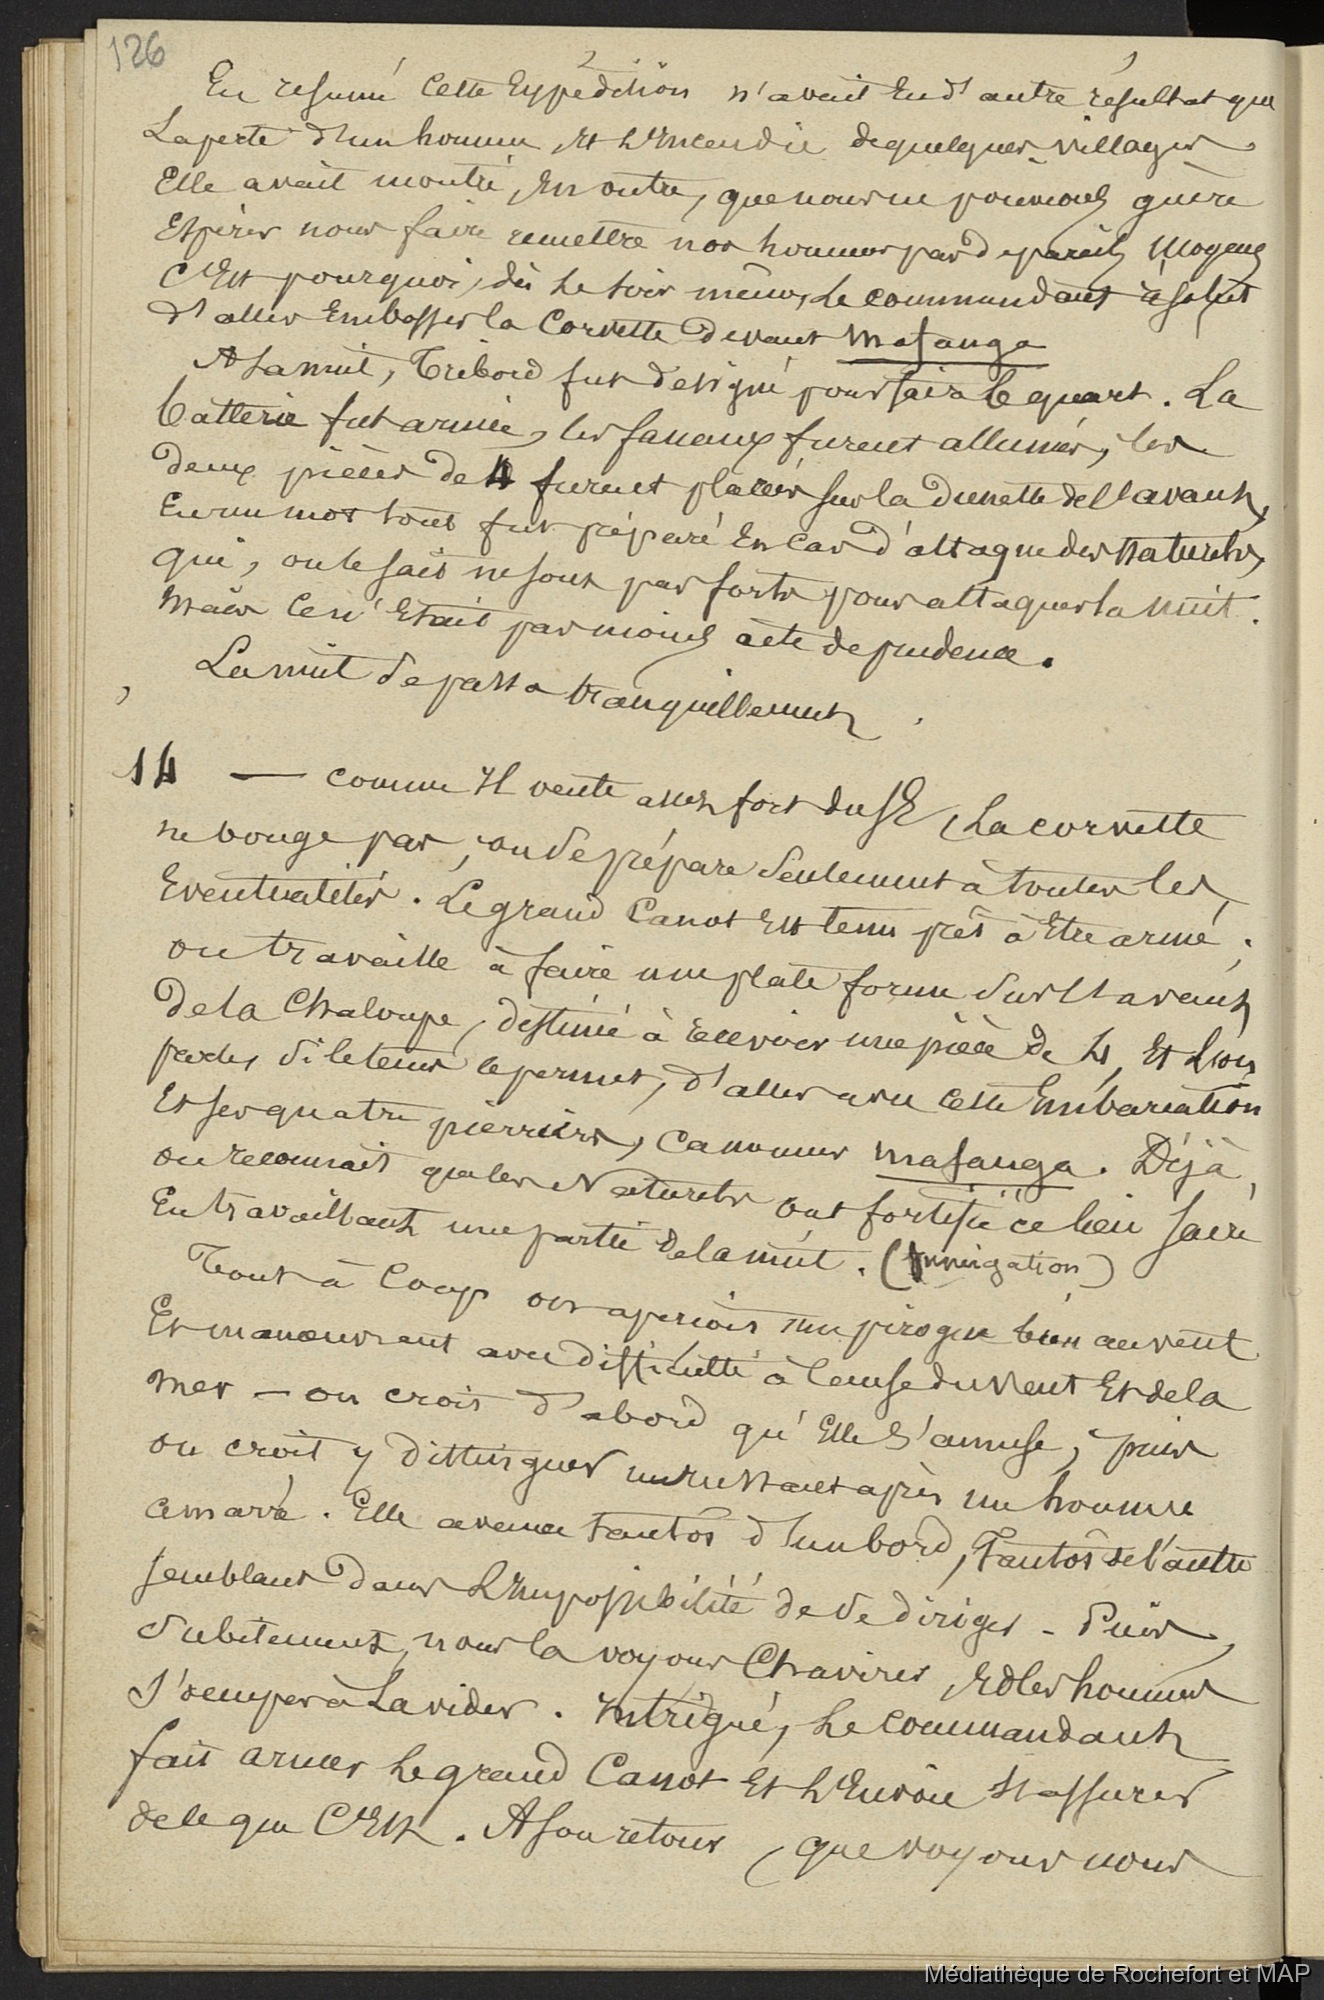 126
En resumé cette Expédition n'avait Eu d'autre résultat que
La perte d'un homme, Et L'Incendie de quelques villages
Elle avait montré, En outre, que nous ne pouvions guère
Espérer nous faire remettre nos hommes par de pareils moyens
C'Est pourquoi, dès le soir même, Le commandant résolut
d'aller Embosser la Corvette devant Mafanga
A La nuit, Tribord fut désigné pour faire le quart. La
batterie fut armée, les fanaux furent allumés, les
deux pièces de 4 furent placées sur la dunette de l'avant,
En un mot tout fut préparé En cas d'attaque des Naturels,
qui, on le sait ne sont pas forts pour attaquer la nuit.
Mais ce n'Etait pas moins acte de prudence.
La nuit se passa tranquillement.
14 — comme Il vente assez fort du SE, La corvette
ne bouge pas, on se prépare seulement à toutes les
Eventualités. Le grand Canot Est tenu prêt à Etre armé;
on travaille à faire une plate forme sur l'avant
de la Chaloupe, destinée à recevoir une pièce de 4, Et L'on
parle, si le tems le permet, d'aller avec cette Embarcation
Et ses quatre pierriers, canonner Mafanga. Déjà
on reconnait que les Naturels ont fortifié ce lieu sacré
En travaillant une partie de la nuit. (fumigation)
Tout à Coup on aperçois une pirogue bien au vent
Et manoeuvrant avec difficulté à cause du vent Et de la
mer — on crois d'abord qu'Elle s'amuse, puis
on croit y distinguer un instant après un homme
amarré. Elle avance tantôt d'un bord, Tantôt de l'autre
semblant dans L'Impossibilité de se diriger - Puis,
subitement, nous la voyons Chavirer, Et les hommes
s'occuper à La vider. Intrigué, Le commandant
fait armer Le grand Canot Et L'Envoie s'assurer
de ce que C'Est. A son retour, que voyons nous
Médiathèque de Rochefort et MAP